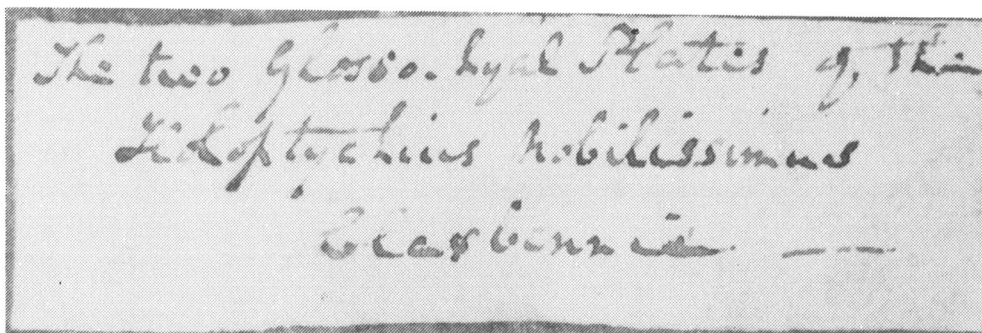 The two Glosso-hyal Plates of the
Holoptychius Nobilissimus
Clashbennie —